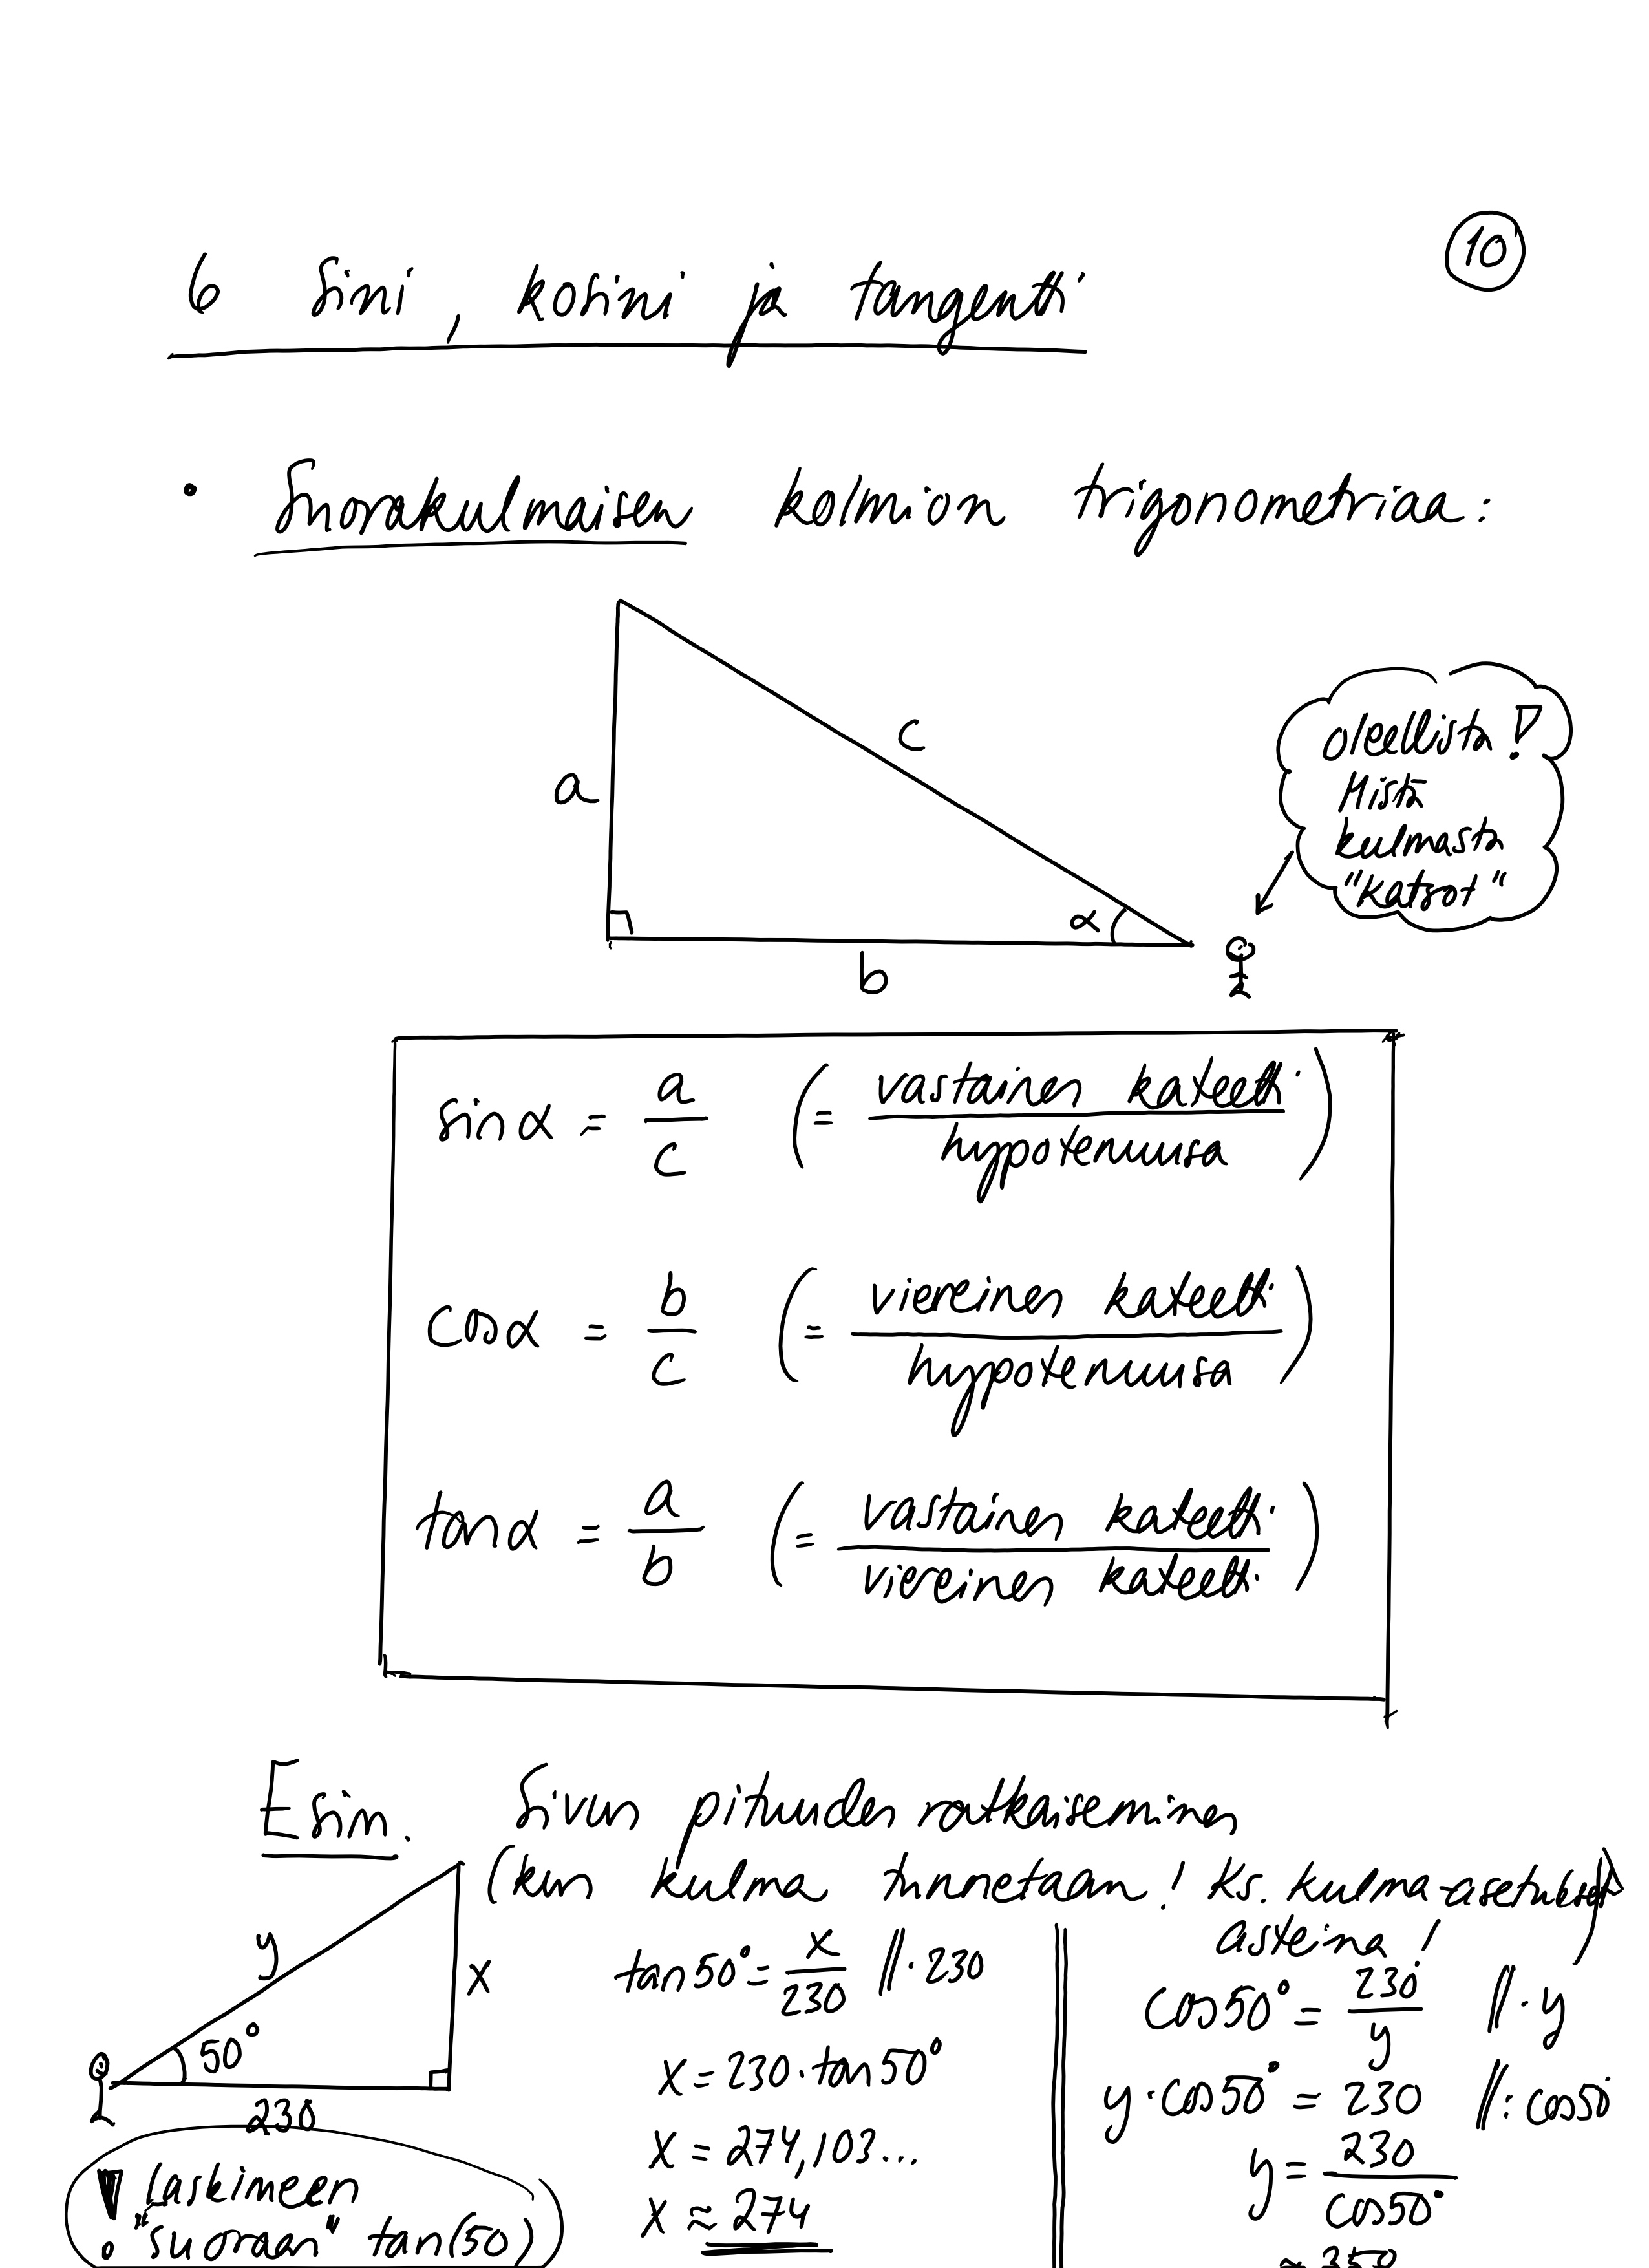 10
6 Sini, kosini ja tangentti
• Suorakulmaisen kolmion trigonometriaa:
c
a
α
b
oleellista!
Mistä
kulmasta
"katsot"
sin α = a/c (= vastainen kateetti / hypotenuusa)
cos α = b/c (= viereinen kateetti / hypotenuusa)
tan α = a/b (= vastainen kateetti / viereinen kateetti)
Esim. Sivun pituuden ratkaiseminen
(kun kulma tunnetaan! Ks. kulma-asetukset
asteina!)
y
x
50°
230
! Laskimeen
"suoraan" tan(50)
tan 50° = x/230 ||·230
x = 230·tan 50°
x = 274,103...
x ≈ 274
cos 50° = 230/y ||·y
y·cos 50° = 230 ||:cos 50°
y = 230/cos 50°